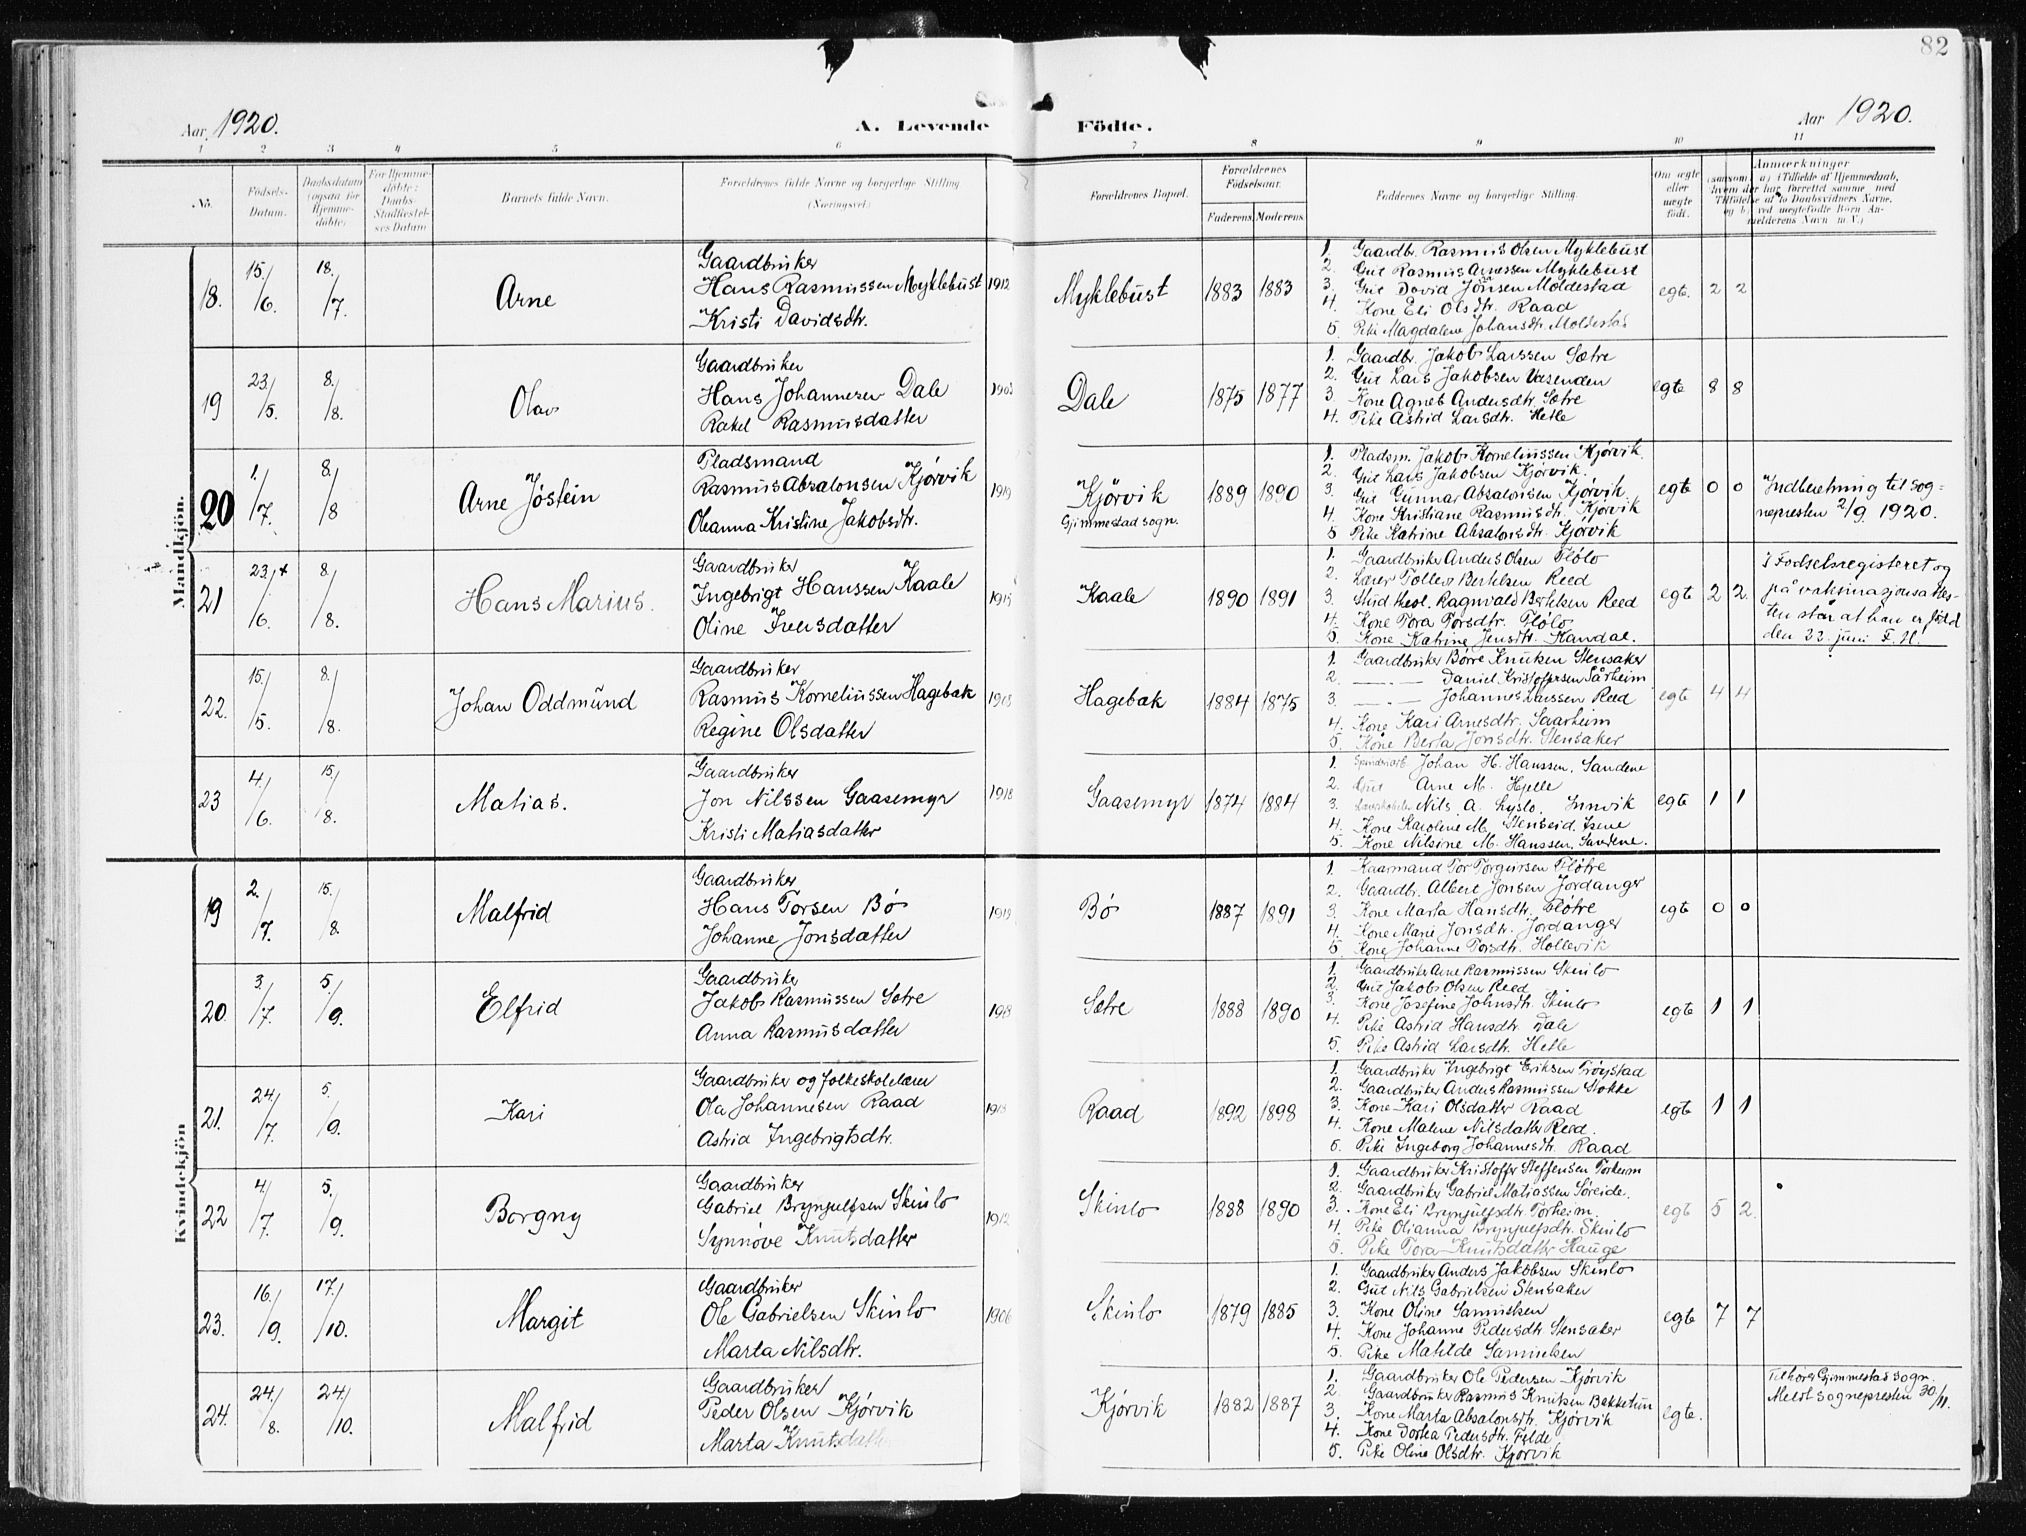 82
Aar 1920.
A. Levende Födte.
Aar 1920.
1 2 3 4 5 6 7 8 9 10 11
No.
Födsels-Datum.
Daabsdatum (ogsaa for Hjemmedöbte)
For Hjemmedöbte: Daabs-Stadfæstelses Datum
Barnets fulde Navn.
Forældrenes fulde Navne og borgerlige Stilling. (Næringsvei.)
Forældrenes Bopæl.
Forældrenes Födselsaar.
Faderens. Moderens.
Faddernes Navne og borgerlige Stilling.
Om ægte eller uægte födt.
Anmærkninger
Mandkjön.
18. 15./6. 18./7. Arne
Gaardbruker
Hans Rasmussen Myklebust 1912
Kristi Davidsdtr.
Myklebust 1883 1883
1. Gaardbr. Rasmus Olsen Myklebust
2. Gut Rasmus Arnessen Myklebust
3. Gut David Jonsen Moldestad
4. Kone Eli Olsdtr. Raad
5. Pike Magdalene Johansdtr Moldestad
egte. 2 2
19 23./5. 8./8. Olav
Gaardbruker
Hans Johannesen Dale 1903
Rakel Rasmusdatter
Dale 1875 1877
1. Gaardbr. Jakob Larssen Sætre
2. Gut Lars Jakobsen Vasenden
3. Kone Agnes Andersdtr. Sætre
4. Pike Astrid Larsdtr. Hetle
egte 8 8
20 1./7. 8./8 Arne Jøstein
Pladsmand
Rasmus Absalonsen Kjørvik 1919
Oleanna Kristine Jakobsdtr.
Kjørvik
Gjimmestad sogn.
1889 1890
1. Pladsm. Jakob Korneliussen Kjørvik.
2. Gut Lars Jakobsen Kjørvik.
3. Gut Gunnar Absalonsen Kjørvik.
4. Kone Kristiane Rasmusdtr. Kjørvik
5 Pike Katrine Absalonsdtr. Kjørvik
egte 0 0
Indberetning til sog=
nepresten 2/9. 1920.
21 23./6. + 8./8. Hans Marius.
Gaardbruker
Ingebrigt Hanssen Kaale 1915
Oline Iversdatter
Kaale 1890 1891
1. Gaardbruker Anders Olsen Fløto
2. Lærer Tollev Bertelsen Reed
3. Stud. theol. Ragnvald Bertelsen Reed
4. Kone Tora Torsdtr. Fløto
5. Kone Katrine Jensdtr. Kandal.
egte 2 2.
I Fødselsregisteret og
på vaksinasjonsattes-
ten står at han er født
den 22. juni F. H.
22. 15./5. 8./8. Johan Oddmund
Gaardbruker
Rasmus Korneliussen Hagebak 1913
Regine Olsdatter
Hagebak 1884 1875
1. Gaardbruker Børre Knutsen Stensaker
2. —"— Daniel Kristoffersen Sårheim
3. —"— Johannes Larssen Reed
4. Kone Kari Arnesdtr. Saarheim
5. Kone Berta Jonsdtr. Stensaker
egte 4 4
23 4./6. 15./8. Matias.
Gaardbruker
Jon Nilssen Gaasemyr 1918
Kristi Matiasdatter
Gaasemyr 1874 1884
1. Johan H. Hanssen, Sandene
2. Gut Arne M. Hjelle
3. Nils A. Lyslo. Innvik
4. Kone Karoline M. Stenseid. Isene
5. Kone Nilsine M. Hanssen. Sandene.
egte 1 1
Kvindekjön
19 2./7. 15./8. Malfrid
Gaardbruker
Hans Torsen Bø 1919
Johanne Jonsdatter
Bø 1887 1891
1. Kaarmand Tor Torgeirsen Fløtre
2. Gaardbr. Albert Jonsen Jordanger
3. Kone Marta Hansdtr. Fløtre
4. Kone Marie Jonsdtr. Jordanger
5 Kone Johanne Torsdtr. Hollevik
egte 0 0
20 3./7. 5./9. Elfrid
Gaardbruker
Jakob Rasmussen Sætre
Anna Rasmusdatter
Sætre 1888 1890
1. Gaardbruker Arne Rasmussen Skinlo
2. Gut Jakob Olsen Reed
3. Kone Josefine Johnsdtr. Skinlo
4. Pike Astrid Hansdtr. Dale
5. Pike Astrid Larsdtr. Hetle
egte 1 1
21. 24./7. 5./9. Kari
Gaardbruker og folkeskolelærer
Ola Johannesen Raad 1918
Astrid Ingebrigtsdtr.
Raad 1892 1898
1. Gaardbruker Ingebrigt Eriksen Frøystad
2. Gaardbruker Anders Rasmussen Stokke
3. Kone Kari Olsdatter Raad
4. Kone Malene Nilsdatter Reed.
5. Pike Ingeborg Johannesdtr. Raad
egte 1 1
22 4./7. 5./9. Borgny
Gaardbruker
Gabriel Brynjulfsen Skinlo 1912
Synnøve Knutsdatter
Skinlo 1888 1890
1. Gaardbruker Kristoffer Steffensen Torheim
2. Gaardbruker Gabriel Matiassen Søreide.
3. Kone Eli Brynjulfsdtr. Torheim.
4. Pike Olianna Brynjulfsdtr. Skinlo
5. Pike Tora Knutsdatter Hauge
egte 5 2.
23. 16./9. 17./10. Margit
Gaardbruker
Ole Gabrielsen Skinlo 1906
Marta Nilsdtr.
Skinlo 1879 1885
1. Gaardbruker Anders Jakobsen Skinlo
2. Gut Nils Gabrielsen Stensaker
3. Kone Oline Samuelsen
4. Kone Johanne Pedersdtr Stensaker
5. Pike Matilde Samuelsen
egte 7 7
24. 24./8. 24./10. Malfrid
Gaardbruker
Peder Olsen Kjørvik
Marta Knutsdatter
Kjørvik 1882 1887
1. Gaardbruker Ole Pedersen Kjørvik
2. Gaardbruker Rasmus Knutsen Bakketun
3. Kone Marta Absalonsdtr. Kjørvik
4. Kone Dortea Pedersdtr. Felde
5. Pike Oline Olsdtr. Kjørvik
egte.
Tilhører Gjimmestad sogn.
Meldt sognepresten 30/11.